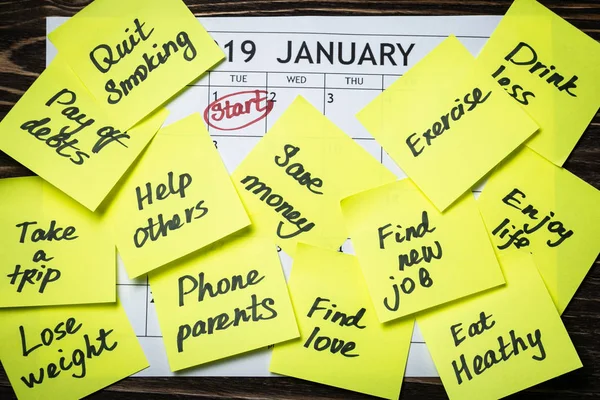 19 JANUARY
TUE WED THU
1 2 3
Start
Quit
Smoking
Pay of
debts
Help
others
Save
money
Exercise
Drink
less
Take
a
trip
Phone
parents
Find
new
job
Enjoy
life
Lose
weight
Find
love
Eat
Heathy